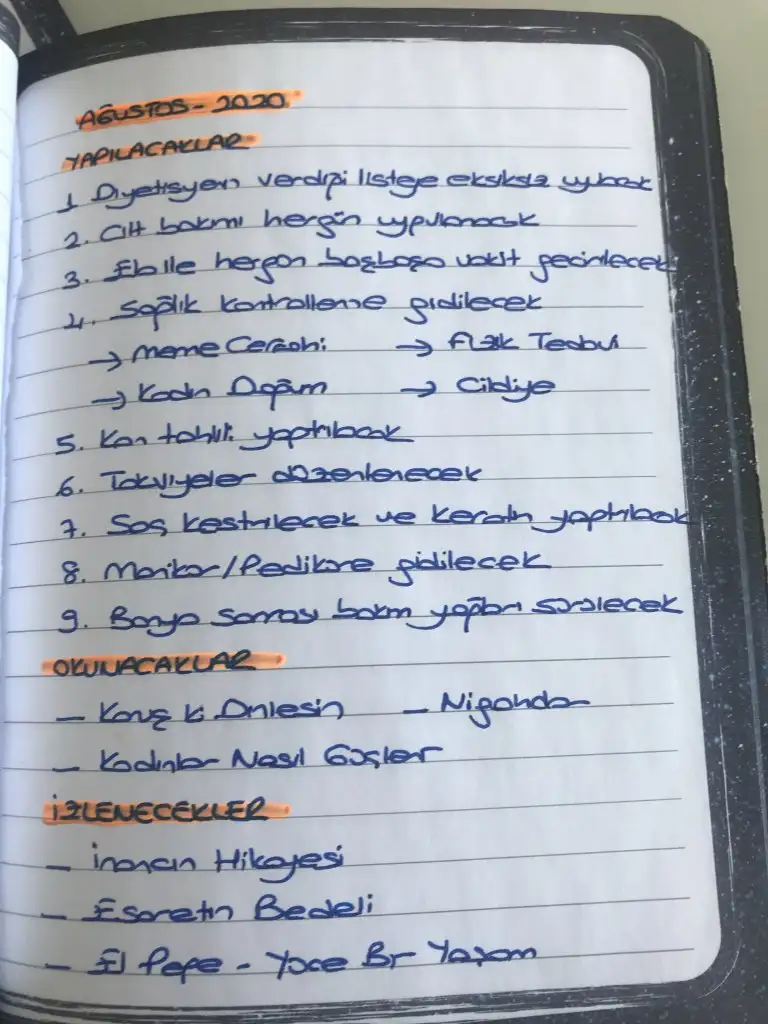 AĞUSTOS - 2020
YAPILACAKLAR
1. Diyetisyen verdiği listeye eksiksiz uyulacak
2. Cilt bakımı hergün uygulanacak
3. Ebi ile hergün başbaşa vakit geçirilecek
4. Sağlık kontrollerine gidilecek
→ Meme Cerrahi → Fizik Tedavi
→ Kadın Doğum → Cildiye
5. Kan tahlili yaptırılacak
6. Takviyeler düzenlenecek
7. Saç kestirilecek ve keratin yaptırılacak
8. Manikür/Pediküre gidilecek
9. Banyo sonrası bakım yağları sürülecek
OKUNACAKLAR
- Konuş ki Dinlesin - Nigahdar
- Kadınlar Nasıl Güçlenir
İZLENECEKLER
- İnancın Hikayesi
- Esaretin Bedeli
- El Pepe - Yüce Bir Yaşam